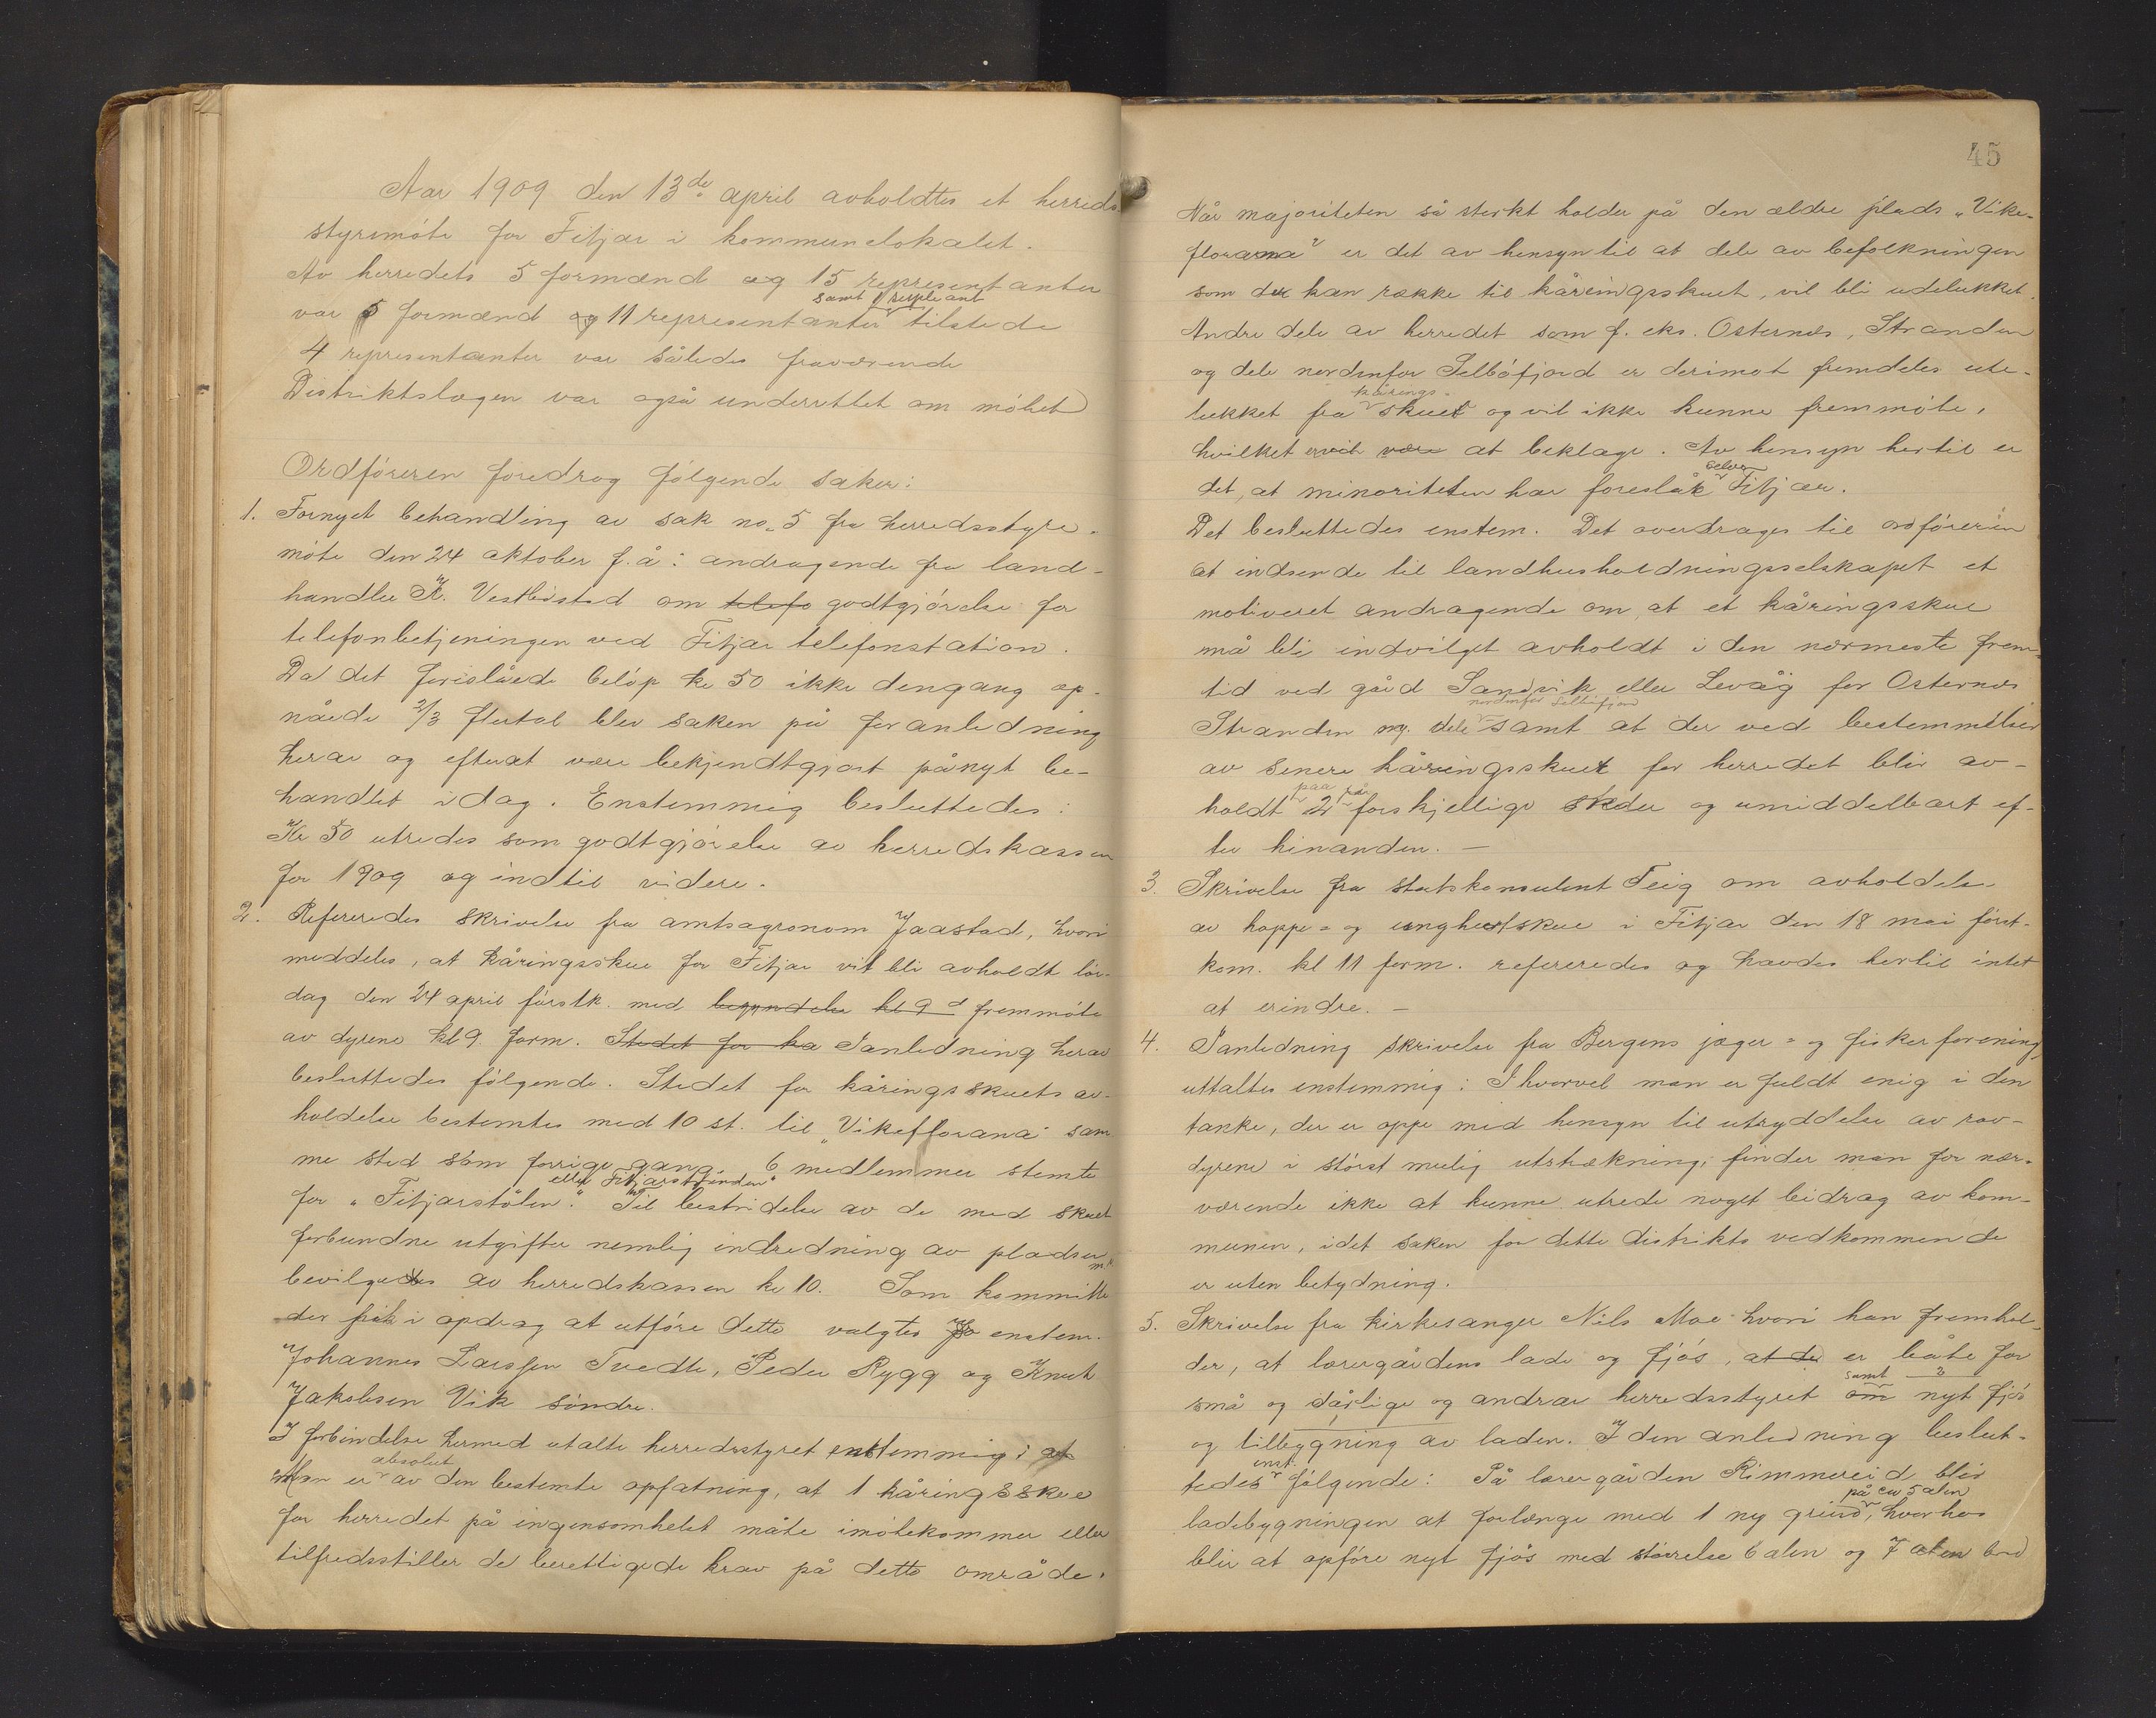 Aar 1909 den 13de april avholdtes et herreds-
styremöte for Fitjar i kommunelokalet.
Av herredets 5 formænd og 15 representanter
samt 1 supleant
var 5 formænd og 11 representanter tilstede
4 representanter var således fraværende
Distriktslægen var også underrettet om möhet
Ordföreren foredrog fölgende saker:
1. Fornyet behandling av sak no. 5 fra herredsstyre-
möte den 24 oktober f.å: andragende fra land-
handler K. Vestböstad om telefo godtgjörelse for
telefonbetjeningen ved Fitjar telefonstation.
Da det foreslåede belöp kr 50 ikke dengang op-
nåede 2/3 flertal blev saken på foranledning
herav og efterat være bekjendtgjort pånyt be-
handlet idag. Enstemmig besluttedes:
Kr 50 utredes som godtgjörelse av herredskassen
for 1909 og indtil videre.
2. Refereredes skrivelse fra amtsagronom Jaastad, hvori
meddeles, at kåringsskue for Fitjar vil bli avholdt lör-
dag den 24 april förstk. med begyndelse kl 9 fremmöte
av dyrene kl 9 form. Stedet for ka Ianledning herav
besluttedes fölgende. Stedet for kåringsskuets av-
holdelse bestemtes med 10 st. til „Vikeflorana" sam
me sted som forrige gang. 6 medlemmer stemte
eller Fitjarstranden"
for „Fitjarstölen". Til bestridelse av de med skuet
forbundne utgifter nemlig indredning av pladsen
m.v.
bevilgedes av herredskassen kr 10. Som kommitte
der fik i opdrag at utföre dette valgtes Jo enstem.
Johannes Larssen Tvedte, Peder Rygg og Knut
Jakobsen Vik söndre.
I forbindelse hermed utalte herredsstyret enstemmig: at
absolut
Man er av den bestemte opfatning, at 1 kåringsskue
for herredet på ingensomhelst måte imötekommer eller
tilfredsstiller de berettigede krav på dette område.
45
Når majoriteten så sterkt holder på den ældre plads „Vike-
florarna" er det av hensyn til at dele av befolkningen
som der kan række til kåringsskuet, vil bli udelukket.
Andre dele av herredet som f. eks. Osternes, Stranden
og dele nordenfor Selböfjord er derimot fremdeles ute-
kårings-
lukket fra skuet og vil ikke kunne fremmöte,
hvilket er vil være at beklage. Av hensyn hertil er
det, at minoriteten har foreslåk Fitjar.
Det besluttedes enstem. Det overdrages til ordföreren
at indsende til landhusholdningsselskapet et
motiveret andragende om, at et kåringsskue
må bli indvilget avholdt i den nærmeste frem-
tid ved gård Sandvik eller Levåg for Osternes
nordenfor Selböfjord
Stranden og dele samt at der ved bestemmelser
av senere kåringsskuer for herredet blir av-
paa
holdt 2 forskjellige steder og umiddelbart ef-
ter hinanden. —
3. Skrivelse fra statskonsulent Feig om avholdelse
av hoppe- og unghestskue i Fitjar den 18 mai först-
kom. kl 11 form. refereredes og havdes hertil intet
at erindre. —
4. Ianledning skrivelse fra Bergens jæger- og fiskerforening
uttaltes enstemmig: Ihvorvel man er fuldt enig i den
tanke, der er oppe med hensyn til utryddelse av rov-
dyrene i störst mulig utstrækning; finder man for nær-
værende ikke at kunne utrede noget bidrag av kom-
munen, idet saken for dette distrikts vedkommende
er uten betydning.
5. Skrivelse fra kirkesanger Nils Moe hvori han fremhol-
der, at lærergårdens lade og fjös, at de er både for
samt
små og dårlige og andrar herredsstyret om nyt fjös
og tilbygning av laden. I den anledning beslut-
enst.
tedes fölgende: På lærergården Rimmereid blir
på en 5 alen
ladebygningen at forlænge med 1 ny grind, hvorhos
blir at opföre nyt fjös med störrelse 6 alen og 7 alen bred